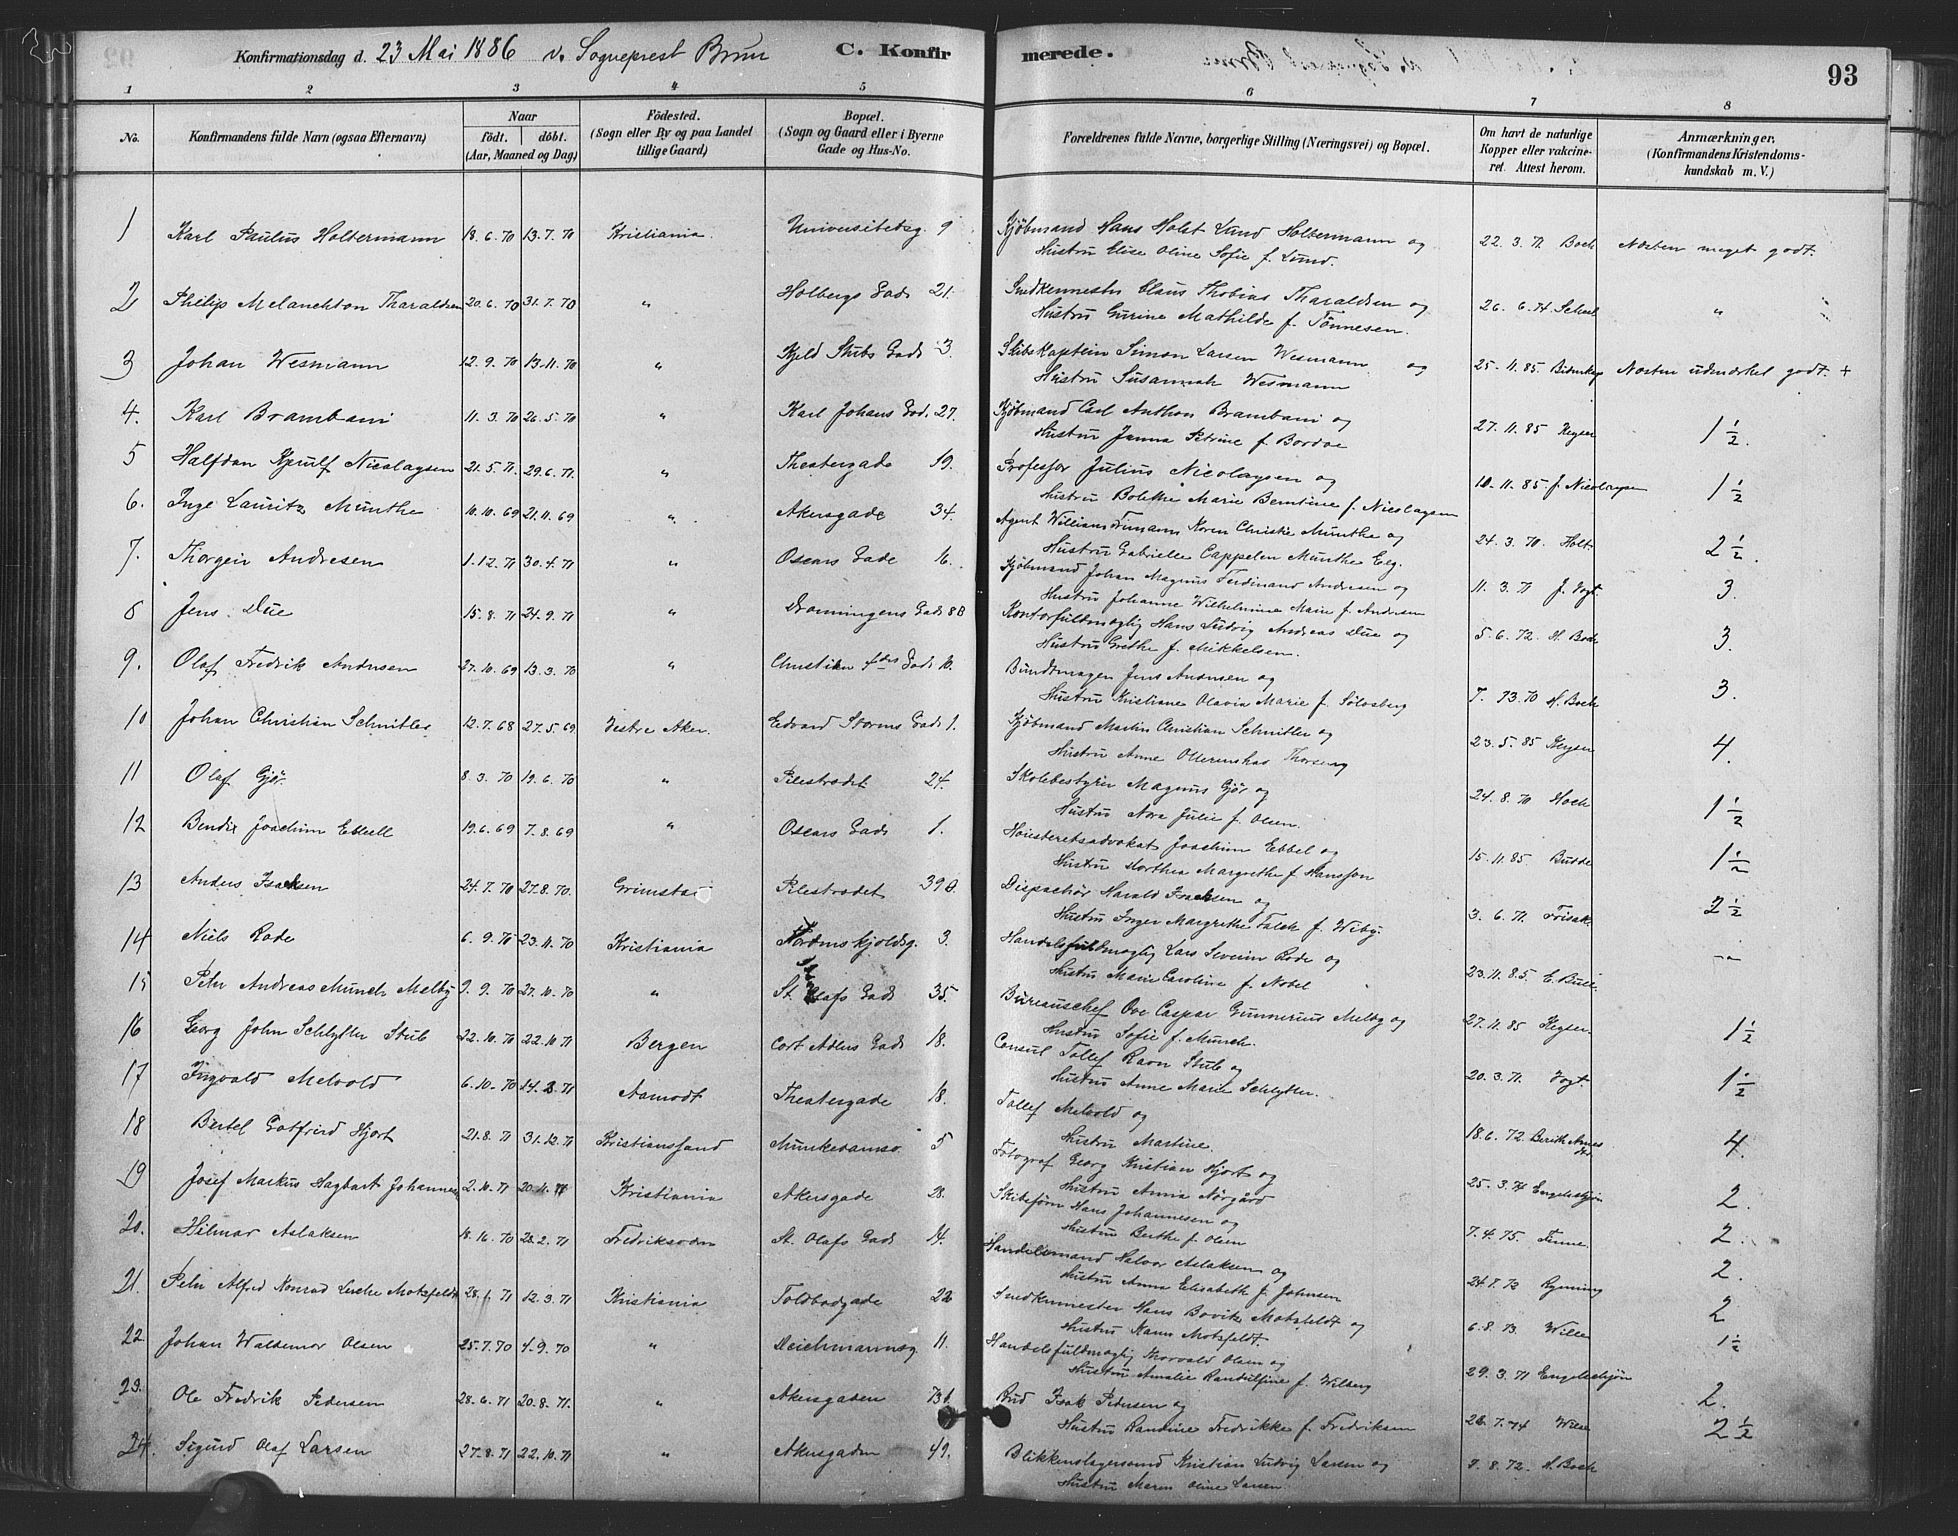 Konfirmationsdag d. 23 Mai 1886 v. Sogneprest Brun C. Konfirmerede. 93
1 2 3 4 5 6 7 8
No. Konfirmandens fulde Navn (ogsaa Efternavn) Naar födt. döbt. (Aar, Maaned og Dag) Födested. (Sogn eller By og paa Landet tillige Gaard) Bopæl. (Sogn og Gaard eller i Byerne Gade og Hus-No. Forældrenes fulde Navne, borgerlige Stilling (Næringsvei) og Bopæl. Om havt de naturlige Kopper eller vakcineret. Attest herom. Anmærkninger. (Konfirmandens Kristendomskundskab m. V.)
1 Karl Paulus Holtermann 18.6.70 13.7.70 Kristiania. Universitetsg. 9 Kjøbmand Hans Holst Lund Holtermann og Hustru Elise Oline Sofie f. Lund. 22.3.71 Boch Næsten meget godt.
2 Philip Melanchton Tharaldsen 20.6.70 31.7.70 " Holbergs Gade 21. Snedkermester Claus Thobias Tharaldsen og Hustru Gurine Mathilde f. Tönnesen. 26.6.74 "
3 Johan Wesmann 12.9.70 13.11.70 " Kjeld Stubs Gade 3. Skibskaptein Simon Larsen Wesmann og Hustru Susannah Wesmann 25.11.85 Næsten udmærket godt. +
4. Karl Brambani 11.3.70 26.5.70 " Karl Johans Gad. 27. Kjøbmand Carl Anthon Brambani og Hustru Janna Petrine f. 27.11.85 Keyser 1 1/2.
5 Halfdan Kjerulf Nicolaysen 21.5.71. 29.6.71 " Theatergade 19. Professor Julius Nicolaysen og Hustru Bolette Marie Berntine f. Nicolaysen 10.11.85 J. Nicolaysen 1 1/2
6. Inge Lauritz Munthe 10.10.69 21.11.69 " Akersgade 34. Agent Christie Munthe og Hustru Gabrielle Cappelen Munthe 24.3.70. Holt 2 1/2.
7. Thorgeir Andresen 1.12.71 30.4.71 " Oscars Gade 16. Kjøbmand Johan Magnus Ferdinand Andresen og Hustru Johanne Wilhelmine Marie f. Andersen 11.3.71 J. Vogt 3.
8 Jens Due 15.8.71 24.9.71 " Dronningens Gade 8 B Kontorfuldmægtig Hans Ludvig Andreas Due og Hustru Grethe f. Mikkelsen. 5.6.72 3.
9. Olaf Fredrik Andersen 27.10.69 13.3.70 " Christian 4des Gade 10. Bundtmager Jens Andersen og Hustru Kristiane Olavia Marie f. Sölvsberg 7. 70 H. Boch 3.
10 Johan Christian Schnitler 12.7.68 27.5.69 Vestre Aker. Edvard Storms Gade 1. Kjøbmand Martin Christian Schnitler og Hustru Anne 23.5.85 Keyser 4.
11 Olaf Gjör 8.3.70 19.6.70 " Pilestrædet 24. Skolebestyrer Magnus Gjör og Hustru Nora Julie f. Olsen. 24.8.70 Hoch 1 1/2
12 Bendix Joachim Ebbell 19.6.69 7.8.69 " Oscars Gade 1. Høiesteretsadvokat Joachim Ebbel og Hustru Dorthea Margrethe f. Hansson 15.11.85 Budde 1 1/2
13 Anders Isachsen 24.7.70 27.8.70. Grimstad Pilestrædet 39 Dispachör Harald Isachsen og Hustru Inger Margrethe Falck f. Wiby. 3.6.71 Frisak 2 1/2
14 Niels Rode 6.9.70 23.11.70 Kristiania Tordenskjoldsg. 3. Handelsfuldmægtig Lars Severin Rode og Hustru Marie Caroline f. Nobel 23.11.85 E. Bull
15 Peter Andreas Munch Melby 9.9.70 27.10.70 " St. Olafs Gade 35. Bureauschef Ove Caspar Gunnerius Melby og Hustru Sofie f. Munch. 27.11.85 Keyser 1 1/2
16 Georg John Schlytter Stub 22.10.70 22.10.71 Bergen Cort Adlers Gade 18. Consul Tollef Ravn Stub og Hustru Anne Marie Schlytter. 20.3.71. Vogt. 1 1/2
17 Ingvald Melvold 6.10.70 14.2.71 Aamodt Theatergade 18. Tollef Melvold og Hustru Martine. 18.6.72 4.
18 Bertel Gotfried Hjort 21.8.71 31.12.71 Kristianssand Munkedamsv. 5 Fotograf Georg Kristian Hjort og Hustru Anna Nørgård 25.3.74 Engelschjøn 2.
19 Josef Markus Hagbart Johannes 2.10.71 20.11.71 Kristiania Akersgade 28. Skibsfører Hans Johannesen og Hustru Berthe f. Olsen 7.4.75. Finne. 2.
20. Hilmar Aslaksen 18.10.70 28.2.71 Fredriksværn St. Olafs Gade 14. Handelsmand Halvor Aslaksen og Hustru Anna Elisabeth f. Johnsen 24.7.72 Rynning 2.
21. Peter Alfred Konrad Lerche Motzfeldt 28.1.71 12.3.71 Kristiania Toldbodgade 22 Snedkermester Hans Motzfeldt og Hustru Karen Motzfeldt. 6.8.73 Wille 2
22. Johan Waldemar Olsen 25.7.70 4.9.70 " Deichmannsg 11. Handelsfuldmægtig Thorvald Olsen og Hustru Amalie Randulfine f. Wilberg 29.3.71 Engelschjøn 1 1/2
23. Ole Fredrik Pedersen 28.6.71 20.8.71. " Akersgaden 73 b. Bud Isak Pedersen og Hustru Randine Fredrikke f. Fredriksen 26.7.74 Wille 2.
24. Sigurd Olaf Larsen 27.8.71 22.10.71 " Akersgaden 49. Blikkenslagersvend Kristian Ludvig Larsen og Hustru Maren Oline Larsen 7.8.72. H. Boch 2 1/2